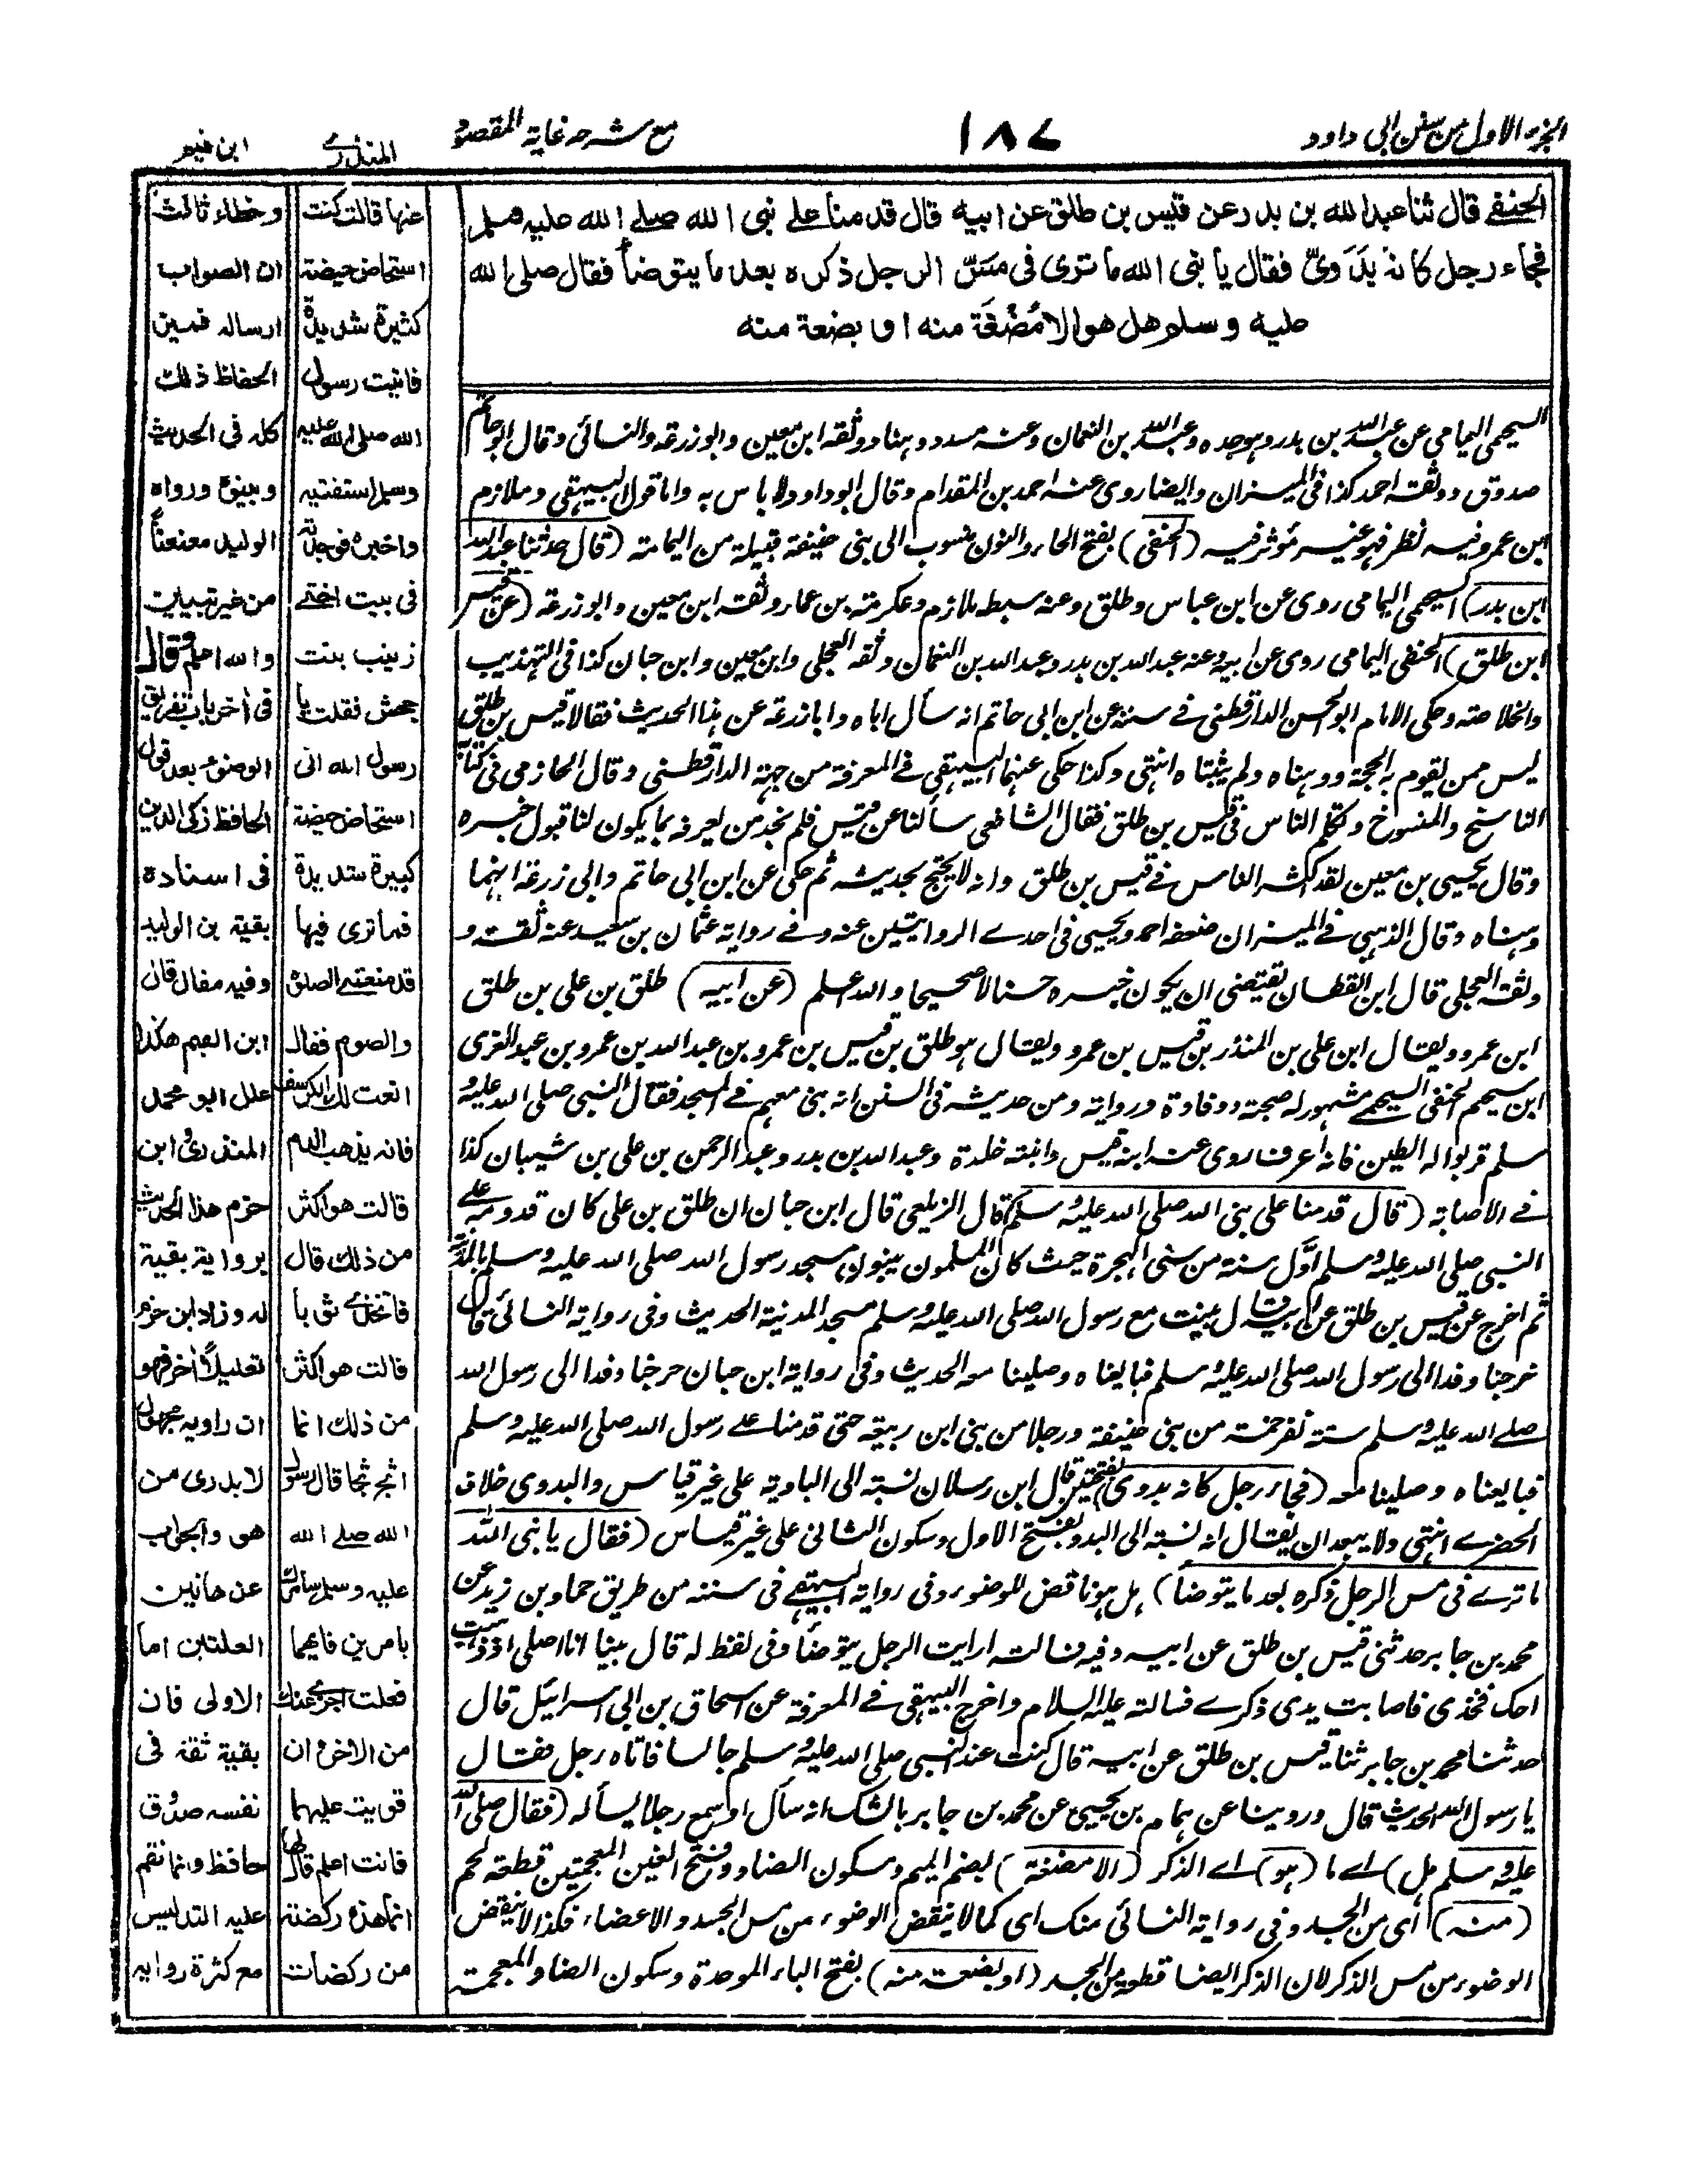 الجزء الاول من سنن ابی داود
١٨٧
مع شرحه غاية المقصود
المنذري
ابن قيم
الحنفي قال ثنا عبد الله بن بدر عن قيس بن طلق عن ابيه قال قدمنا علے نبی الله صلے الله عليه وسلم
فجاء رجل كانه بَدَوِیّ فقال يا نبی الله ما تری فی مَسِّ الرجل ذكره بعد ما يتوضأ فقال صلی الله
عليه وسلم هل هو الا مُضْغَة منه او بضعة منه
السحيمی اليمامی عن عبد الله بن بدر وهو جده وعبد الله بن النعمان وعنه مسدد وهناد وثقه ابن معين وابو زرعة والنسائی وقال ابو حاتم
صدوق ووثقه احمد كذا فی الميزان وايضا روی عنه احمد بن المقدام وقال ابو داود لا باس به واما قول البيهقی وملازم
ابن عمرو فيه نظر فهو غير مؤثر فيه (الحنفی) بفتح الحاء والنون منسوب الی بنی حنيفة قبيلة من اليمامة (قال حدثنا عبد الله
ابن بدر) السحيمی اليمامی روی عن ابن عباس وطلق وعنه سبطه ملازم وعكرمة بن عمار وثقه ابن معين وابو زرعة (عن قيس
ابن طلق) الحنفی اليمامی روی عن ابيه وعنه عبد الله بن بدر وعبد الله بن النعمان وثقه العجلی وابن معين وابن حبان كذا فی التهذيب
والخلاصة وحكی الامام ابو الحسن الدارقطنی فے سننه عن ابن ابی حاتم انه سأل اباه وابا زرعة عن هذا الحديث فقالا قيس بن طلق
ليس ممن يقوم به الحجة ووهناه ولم يثبتاه انتهی وكذا حكی عنهما البيهقی فے المعرفة من جهة الدارقطنی وقال الحازمی فی كتابه
الناسخ والمنسوخ وتكلم الناس فی قيس بن طلق فقال الشافعی سألنا عن قيس فلم نجد من يعرفه بما يكون لنا قبول خبره
وقال يحيی بن معين لقد اكثر الناس فے قيس بن طلق وانه لا يحتج بحديثه ثم حكی عن ابن ابی حاتم وابی زرعة انهما
وهناه وقال الذهبی فے الميزان ضعفه احمد ويحيی فی احدے الروايتين عنه وفے رواية عثمان بن سعيد عنه ثقة و
وثقه العجلی قال ابن القطان يقتضی ان يكون خبره حسنا لا صحيحا والله اعلم (عن ابيه) طلق بن علی بن طلق
ابن عمرو ويقال ابن علی بن المنذر بن قيس بن عمرو ويقال هو طلق بن قيس بن عمرو بن عبد الله بن عمرو بن عبد العزی
ابن سحيم الحنفی السحيمے مشهور له صحبة ووفادة ورواية ومن حديثه فی السنن انه بنی معهم فے المسجد فقال النبی صلی الله عليه و
سلم قربوا له الطين فانه اعرف روی عنه ابنه قيس وابنته خلدة وعبد الله بن بدر وعبد الرحمن بن علی بن شيبان كذا
فے الاصابة (قال قدمنا علی نبی الله صلی الله عليه وسلم) قال الزيلعی قال ابن حبان ان طلق بن علی كان قدومه علے
النبی صلی الله عليه وسلم اوّل سنة من سنی الهجرة حيث كان المسلمون يبنون مسجد رسول الله صلی الله عليه وسلم بالمدينة
ثم اخرج عن قيس بن طلق عن ابيه قال بنيت مع رسول الله صلی الله عليه وسلم مسجد المدينة الحديث وفی رواية النسائی قال
خرجنا وفدا الی رسول الله صلی الله عليه وسلم فبايعناه وصلينا معه الحديث وفی رواية ابن حبان خرجنا وفدا الی رسول الله
صلے الله عليه وسلم ستة نفر خمسة من بنی حنيفة ورجلا من بنی ابن ربيعة حتی قدمنا علے رسول الله صلی الله عليه وسلم
فبايعناه وصلينا معه (فجاء رجل كانه بدوی) بفتحتين قال ابن رسلان نسبة الی البادية علی غير قياس والبدوی خلاف
الحضرے انتهی ولا يبعد ان يقال انه نسبة الی البدو بفتح الاول وسكون الثانی علی غير قياس (فقال يا نبی الله
ما ترے فی مس الرجل ذكره بعد ما يتوضأ) هل هو ناقض للوضوء وفی رواية البيهقے فی سننه من طريق حماد بن زيد عن
محمد بن جابر حدثنی قيس بن طلق عن ابيه وفيه فسالته ارايت الرجل يتوضأ وفی لفظ له قال بينا انا اصلی اذ ذهبت
احك فخذی فاصابت يدی ذكرے فسالته عليه السلام واخرج البيهقی فے المعرفة عن اسحاق بن ابی اسرائيل قال
حدثنا محمد بن جابر ثنا قيس بن طلق عن ابيه قال كنت عند النبی صلی الله عليه وسلم جالسا فاتاه رجل فقال
يا رسول الله الحديث قال وروينا عن همام بن يحيی عن محمد بن جابر بالشك انه سأل او سمع رجلا يسأله (فقال صلی الله
عليه وسلم هل) اے ما (هو) اے الذكر (الا مضغة) بضم الميم وسكون الضاد وفتح الغين المعجمتين قطعة لحم
(منه) ای من الجسد وفی رواية النسائی منك ای كما لا ينقض الوضوء من مس الجسد والاعضاء فكذا لا ينقض
الوضوء من مس الذكر لان الذكر ايضا قطعة من الجسد (او بضعة منه) بفتح الباء الموحدة وسكون الضاد المعجمة
عنها قالت كنت
استحاض حيضة
كثيرة شديدة
فاتيت رسول
الله صلی الله عليه
وسلم استفتيه
واخبره فوجدته
فی بيت اختے
زينب بنت
جحش فقلت يا
رسول الله انی
استحاض حيضة
كبيرة شديدة
فما تری فيها
قد منعتنے الصلوة
والصوم فقال
انعت لك الكرسف
فانه يذهب الدم
قالت هو اكثر
من ذلك قال
فاتخذے ثوبا
قالت هو اكثر
من ذلك انما
اثج ثجا قال رسول
الله صلے الله
عليه وسلم سآمرك
بامرين فايهما
فعلت اجزء عنك
من الاخر وان
قويت عليهما
فانت اعلم قال لها
انما هذه ركضة
من ركضات
وخطاء ثالث
ان الصواب
ارساله فميز
الحفاظ ذلك
كله فی الحديث
وبينوه ورواه
الوليد معنعناً
من غير تبيان
والله اعلم وقال
فی اخر باب تفريق
الوضوء بعد قول
الحافظ زكی الدين
فی اسناده
بقية بن الوليد
وفيه مقال قال
ابن القيم هكذا
علل ابو محمد
المنذری وابن
حزم هذا الحديث
برواية بقية
له وزاد ابن حزم
تعليلاً اخر فهو
ان راويه مجهول
لا يدری من
هو والجواب
عن هاتين
العلتين اما
الاولی فان
بقية ثقة فی
نفسه صدوق
حافظ وانما نقم
عليه التدليس
مع كثرة روايته